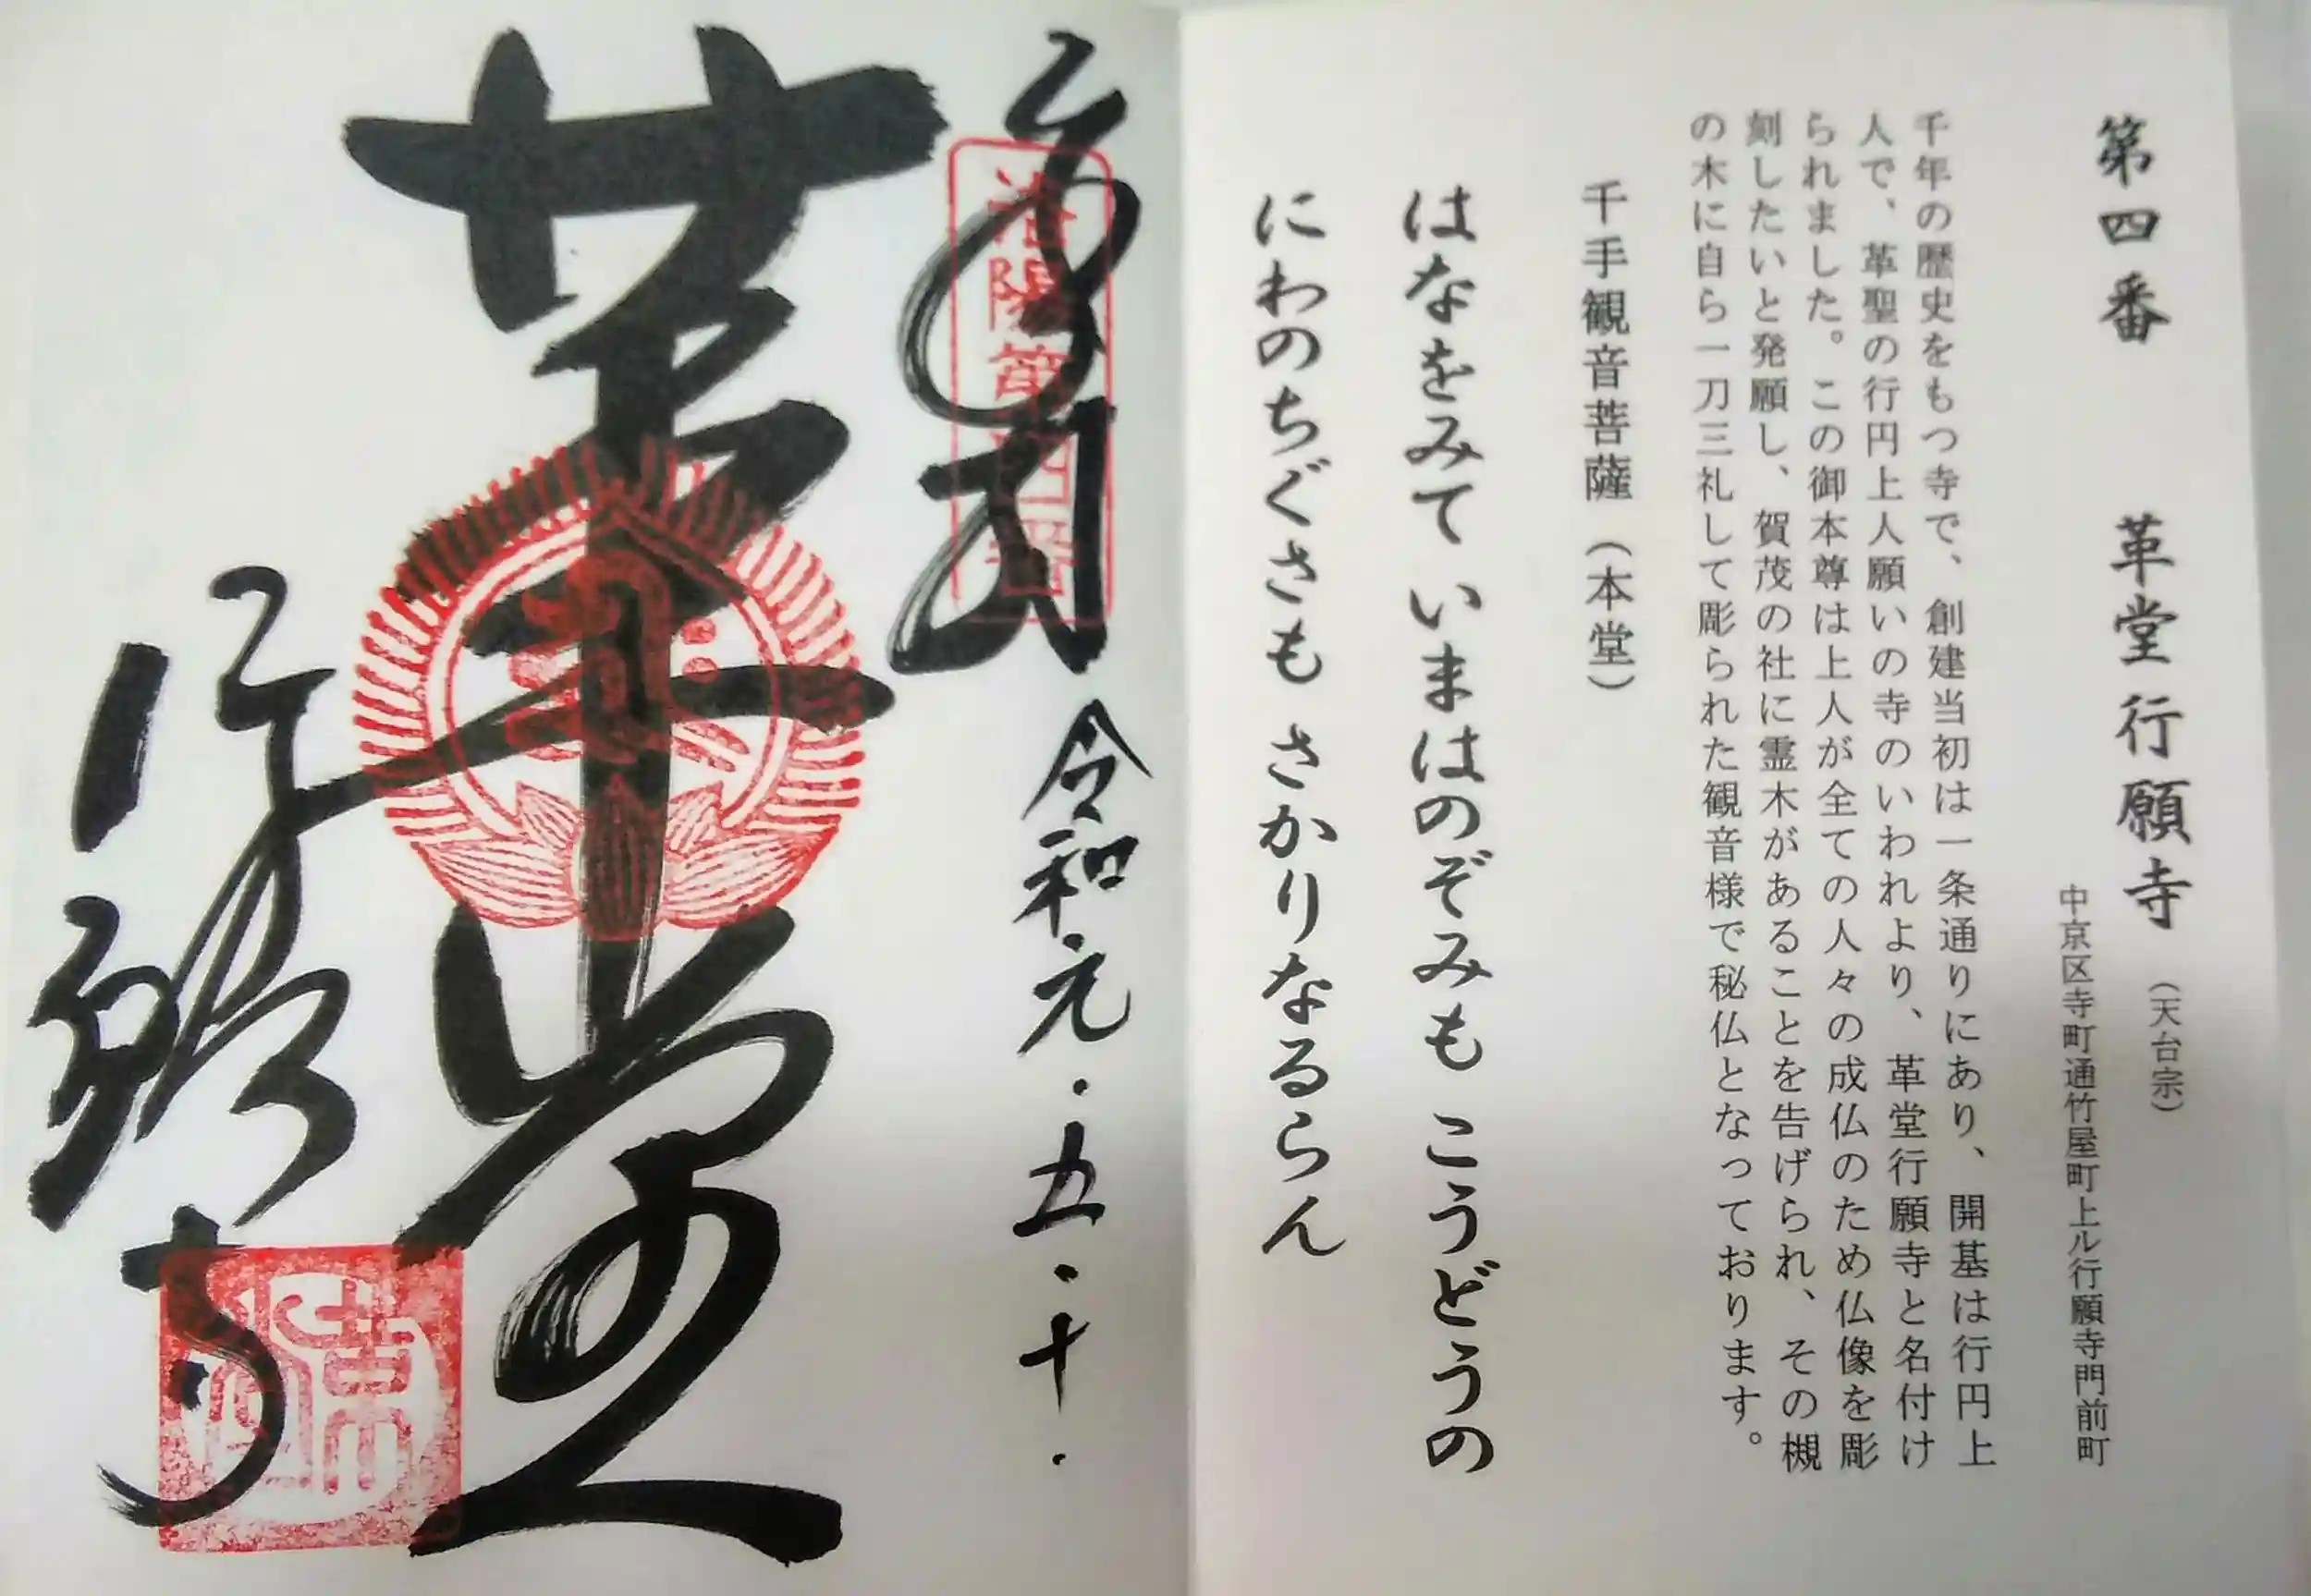 第四番 革堂行願寺 （天台宗）
中京区寺町通竹屋町上ル行願寺門前町
千年の歴史をもつ寺で、創建当初は一条通りにあり、開基は行円上
人で、革聖の行円上人願いの寺のいわれより、革堂行願寺と名付け
られました。この御本尊は上人が全ての人々の成仏のため仏像を彫
刻したいと発願し、賀茂の社に霊木があることを告げられ、その槻
の木に自ら一刀三礼して彫られた観音様で秘仏となっております。
千手観音菩薩（本堂）
はなをみて いまはのぞみも こうどうの
にわのちぐさも さかりなるらん
奉拝 令和元・五・十・
洛陽第四番
革堂
行願寺